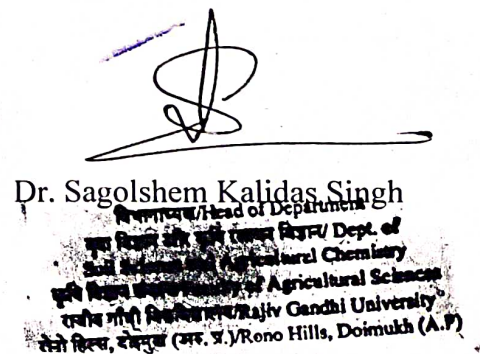 Dr. Sagolshem Kalidas Singh
विभागाध्यक्ष/Head of Department
मृदा विज्ञान और कृषि रसायन विज्ञान/ Dept. of
Soil Science and Agricultural Chemistry
कृषि विज्ञान of Agricultural Sciences
राजीव गाँधी विश्वविद्यालय/Rajiv Gandhi University
रोनो हिल्स, दोईमुख (अरु. प्र.)/Rono Hills, Doimukh (A.P)